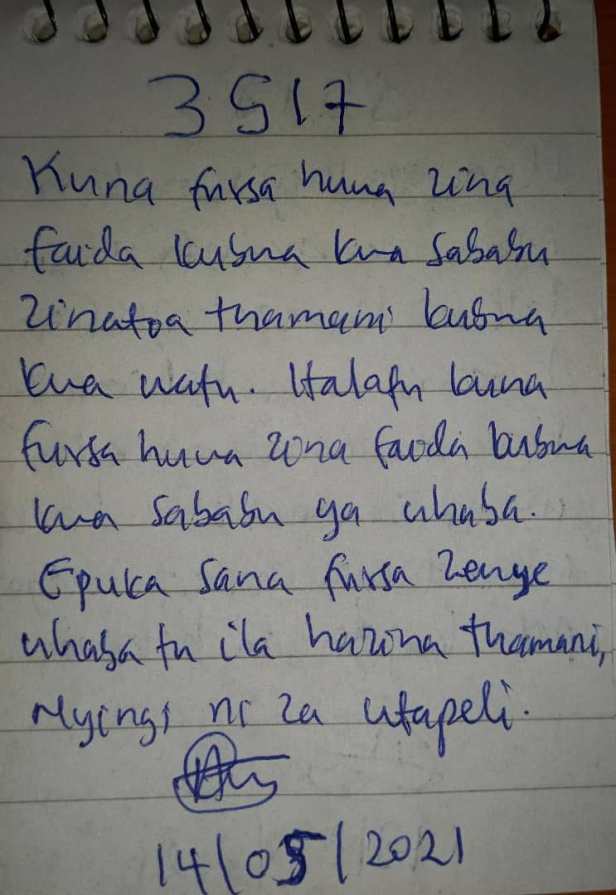 3517
Kuna fursa huwa zina
faida kubwa kwa sababu
zinatoa thamani kubwa
kwa watu. Halafu kuna
fursa huwa zina faida kubwa
kwa sababu ya uhaba.
Epuka sana fursa zenye
uhaba tu ila hazina thamani,
Nyingi ni za utapeli.
14/05/2021